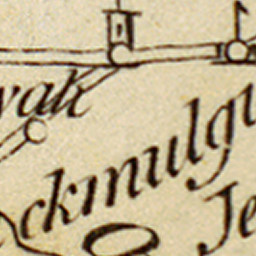 wak
ckmulgi
Je